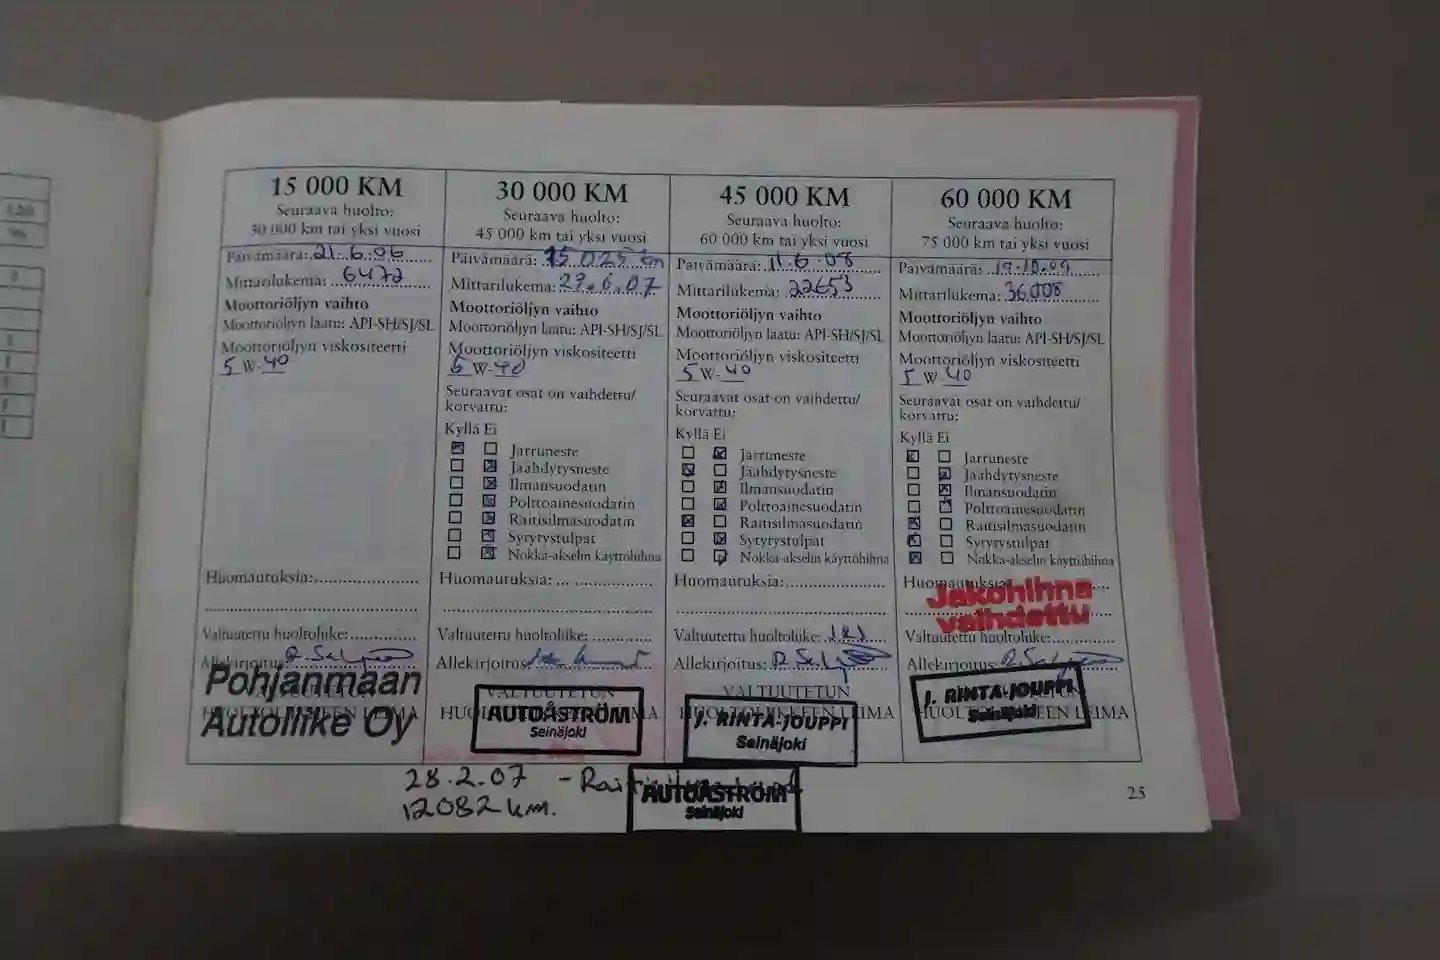 15 000 KM
Seuraava huolto:
30 000 km tai yksi vuosi
Päivämäärä: 21.6.06
Mittarilukema: 6472
Moottoriöljyn vaihto
Moottoriöljyn laatu: API-SH/SJ/SL
Moottoriöljyn viskositeetti
5 W-40
Huomautuksia:
Valtuutettu huoltoliike:
Allekirjoitus:
Pohjanmaan
Autoliike Oy
30 000 KM
Seuraava huolto:
45 000 km tai yksi vuosi
Päivämäärä: 15025 km
Mittarilukema: 27.6.07
Moottoriöljyn vaihto
Moottoriöljyn laatu: API-SH/SJ/SL
Moottoriöljyn viskositeetti
5 W-40
Seuraavat osat on vaihdettu/
korvattu:
Kyllä Ei
Jarruneste
Jäähdytysneste
Ilmansuodatin
Polttoainesuodatin
Raitisilmasuodatin
Sytytystulpat
Nokka-akselin käyttöhihna
Huomautuksia:
Valtuutettu huoltoliike:
Allekirjoitus:
VALTUUTETUN
AUTOÅSTRÖM
Seinäjoki
45 000 KM
Seuraava huolto:
60 000 km tai yksi vuosi
Päivämäärä: 11.6.08
Mittarilukema: 22653
Moottoriöljyn vaihto
Moottoriöljyn laatu: API-SH/SJ/SL
Moottoriöljyn viskositeetti
5 W-40
Seuraavat osat on vaihdettu/
korvattu:
Kyllä Ei
Jarruneste
Jäähdytysneste
Ilmansuodatin
Polttoainesuodatin
Raitisilmasuodatin
Sytytystulpat
Nokka-akselin käyttöhihna
Huomautuksia:
Valtuutettu huoltoliike:
Allekirjoitus:
VALTUUTETUN
J. RINTA-JOUPPI
Seinäjoki
60 000 KM
Seuraava huolto:
75 000 km tai yksi vuosi
Päivämäärä:
Mittarilukema: 36008
Moottoriöljyn vaihto
Moottoriöljyn laatu: API-SH/SJ/SL
Moottoriöljyn viskositeetti
5 W-40
Seuraavat osat on vaihdettu/
korvattu:
Kyllä Ei
Jarruneste
Jäähdytysneste
Ilmansuodatin
Polttoainesuodatin
Raitisilmasuodatin
Sytytystulpat
Nokka-akselin käyttöhihna
Huomautuksia:
Jakohihna
vaihdettu
Valtuutettu huoltoliike:
Allekirjoitus:
J. RINTA-JOUPPI
Seinäjoki
28.2.07
12082 km.
AUTOÅSTRÖM
Seinäjoki
25